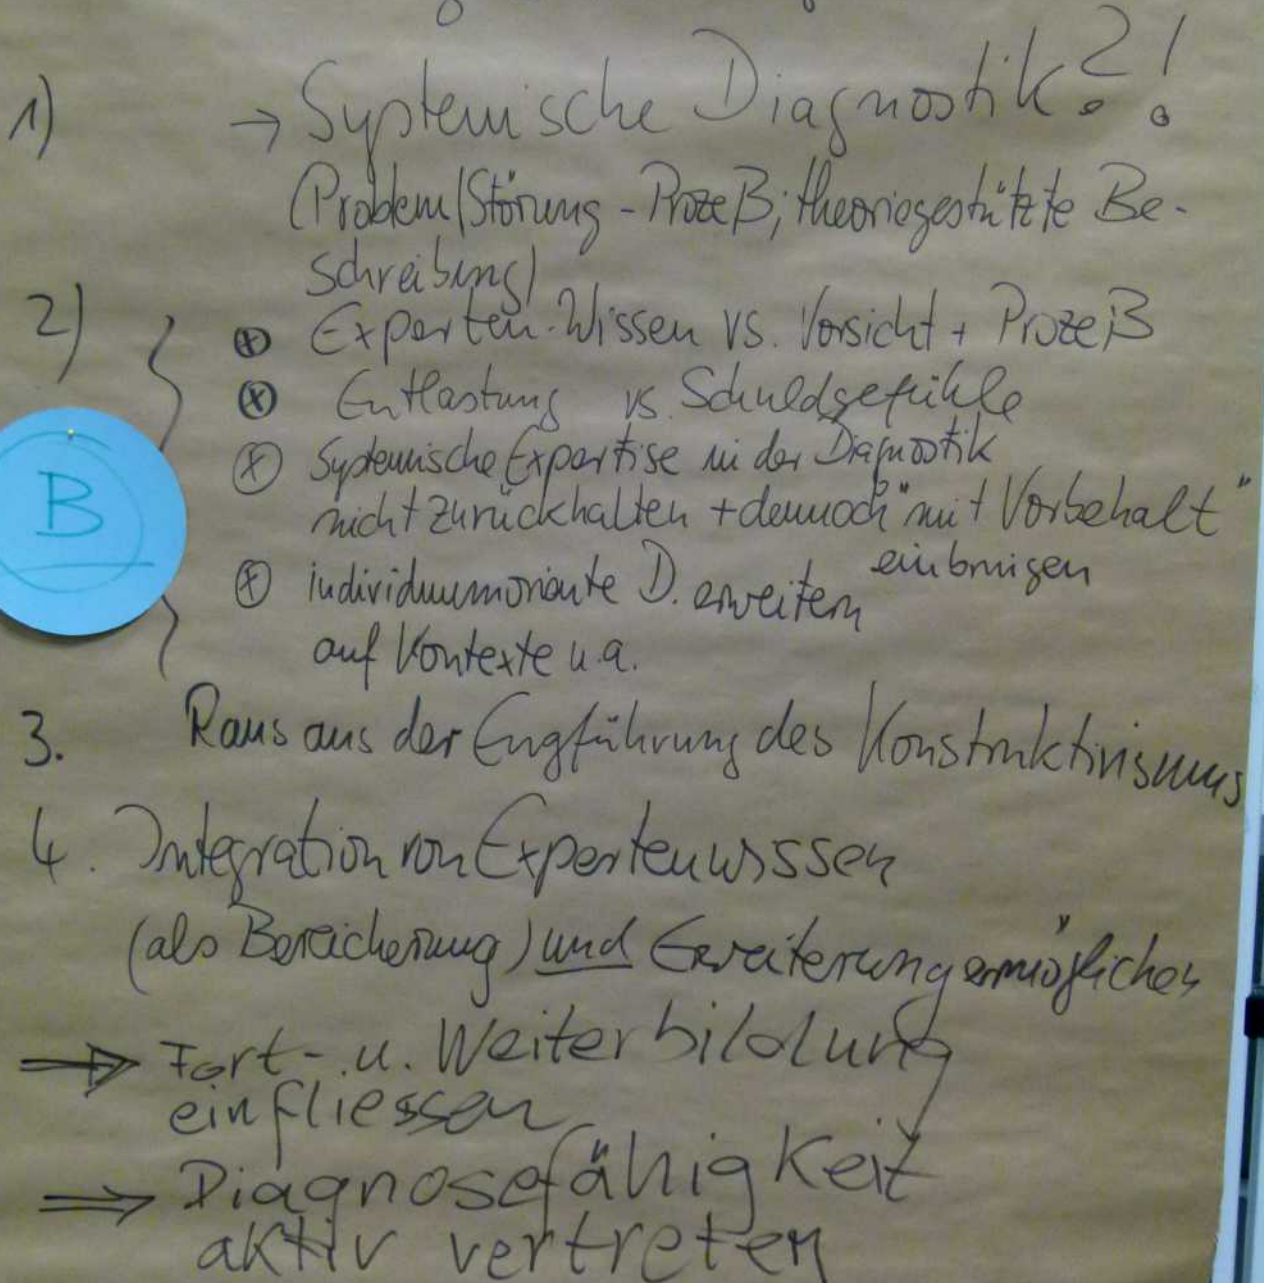 1) → Systemische Diagnostik?!
(Problem/Störung - Prozeß; theoriegestützte Be-
schreibung)
2) ⊗ Experten-Wissen vs. Vorsicht + Prozeß
⊗ Entlastung vs. Schuldgefühle
⊗ Systemische Expertise in der Diagnostik
nicht zurückhalten + dennoch "mit Vorbehalt"
einbringen
B
⊗ individuumoriente D. erweitern
auf Kontexte u.a.
3. Raus aus der Engführung des Konstruktivismus
4. Integration von Expertenwissen
(als Bereicherung) und Erweiterung ermöglichen
⇒ Fort- u. Weiterbildung
einfliessen
⇒ Diagnosefähigkeit
aktiv vertreten